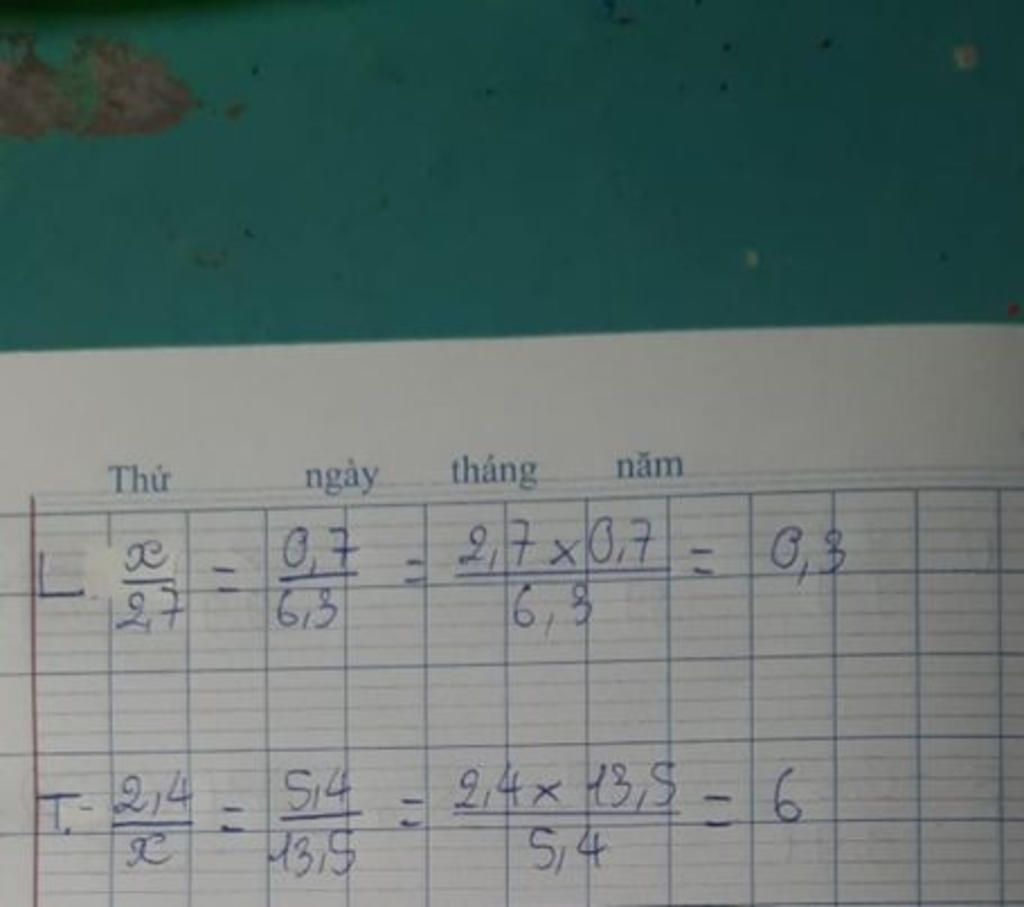 Thứ ngày tháng năm
L. x/2,7 = 0,7/6,3 = 2,7 x 0,7/6,3 = 0,3
T. 2,4/x = 5,4/13,5 = 2,4 x 13,5/5,4 = 6